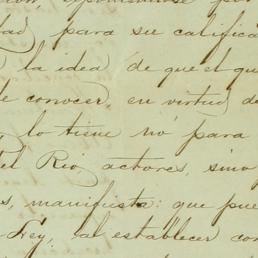 dad para su calificac
la idea de que el qu
de conocer, en virtud de
, lo tiene no para
del Rio, actores, sino p
s, manifiesta: que pue
Ley, al establecer con